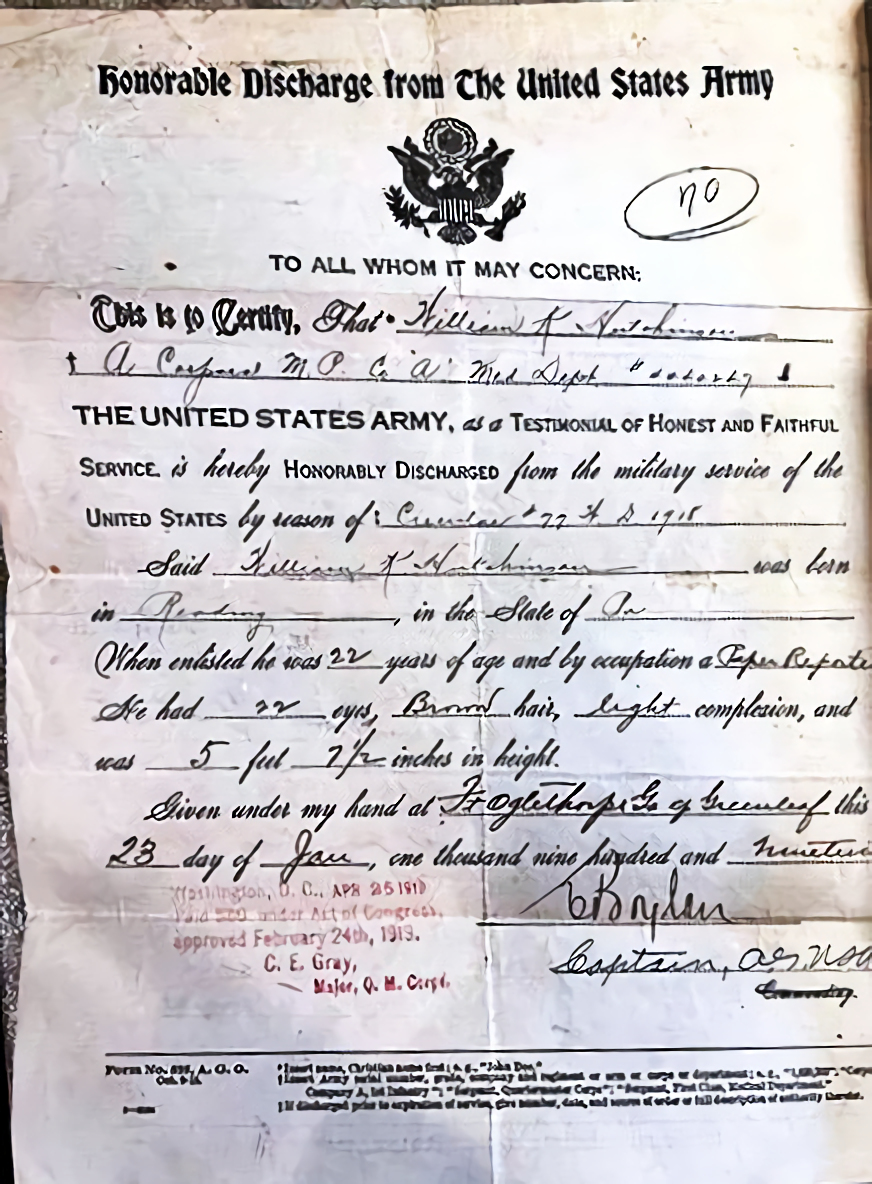 Honorable Discharge from The United States Army
no
TO ALL WHOM IT MAY CONCERN:
This is to Certify, That* William K Hutchinson
† A Corporal M.P. Co "A" Med Dept. #
THE UNITED STATES ARMY, as a TESTIMONIAL OF HONEST AND FAITHFUL
SERVICE is hereby HONORABLY DISCHARGED from the military service of the
UNITED STATES by reason of‡ Circular #77 W D 1918
Said William K Hutchinson was born
in Reading, in the State of Pa
When enlisted he was 22 years of age and by occupation a
He had 22 eyes, Brown hair, light complexion, and
was 5 feet 7 1/2 inches in height.
Given under my hand at Ft Oglethorpe Ga Greenleaf this
23 day of Jan, one thousand nine hundred and
Washington, D. C., APR 25 1919
Paid $60 under Act of Congress,
approved February 24th, 1919.
C. E. Gray,
Major, Q. M. Corps.
Captain,
Commanding.
Form No. 525, A. G. O.
*Insert name, Christian name first; e. g., "John Doe."
†Insert Army serial number, grade, company and regiment or arm or corps or department; e. g.,
Company A, 1st Infantry"; "Sergeant, Quartermaster Corps"; "Sergeant, First Class, Medical Department."
‡If discharged prior to expiration of service, give number, date, and source of order or full description of authority therefor.